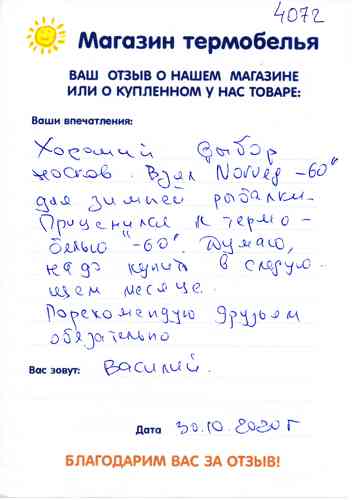 4072
Магазин термобелья
ВАШ ОТЗЫВ О НАШЕМ МАГАЗИНЕ
ИЛИ О КУПЛЕННОМ У НАС ТОВАРЕ:
Ваши впечатления:
Хороший выбор
носков. Взял Norveg -60"
для зимней рыбалки.
Приценился к термо-
белью "-60". Думаю,
надо купить в следую-
щем месяце.
Порекомендую друзьям
обязательно
Вас зовут: Василий.
Дата 30.10.2020 г
БЛАГОДАРИМ ВАС ЗА ОТЗЫВ!